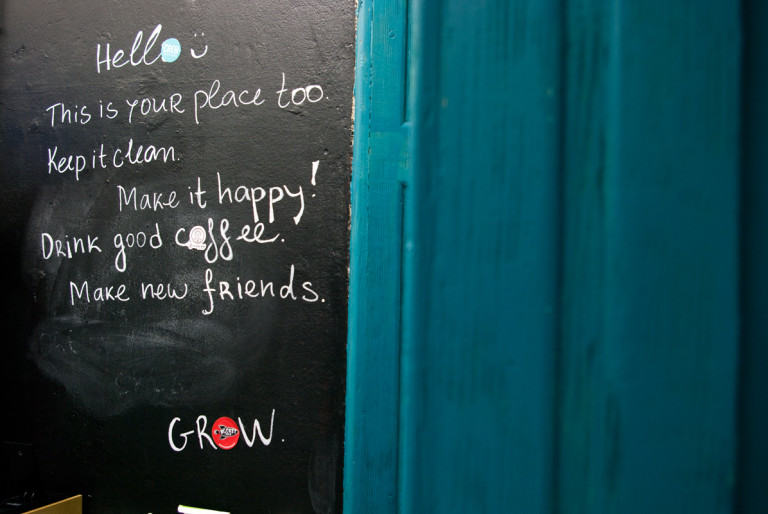 Hello
This is YOUR place too.
Keep it clean.
Make it happy!
Drink good coffee.
Make new friends.
GROW.